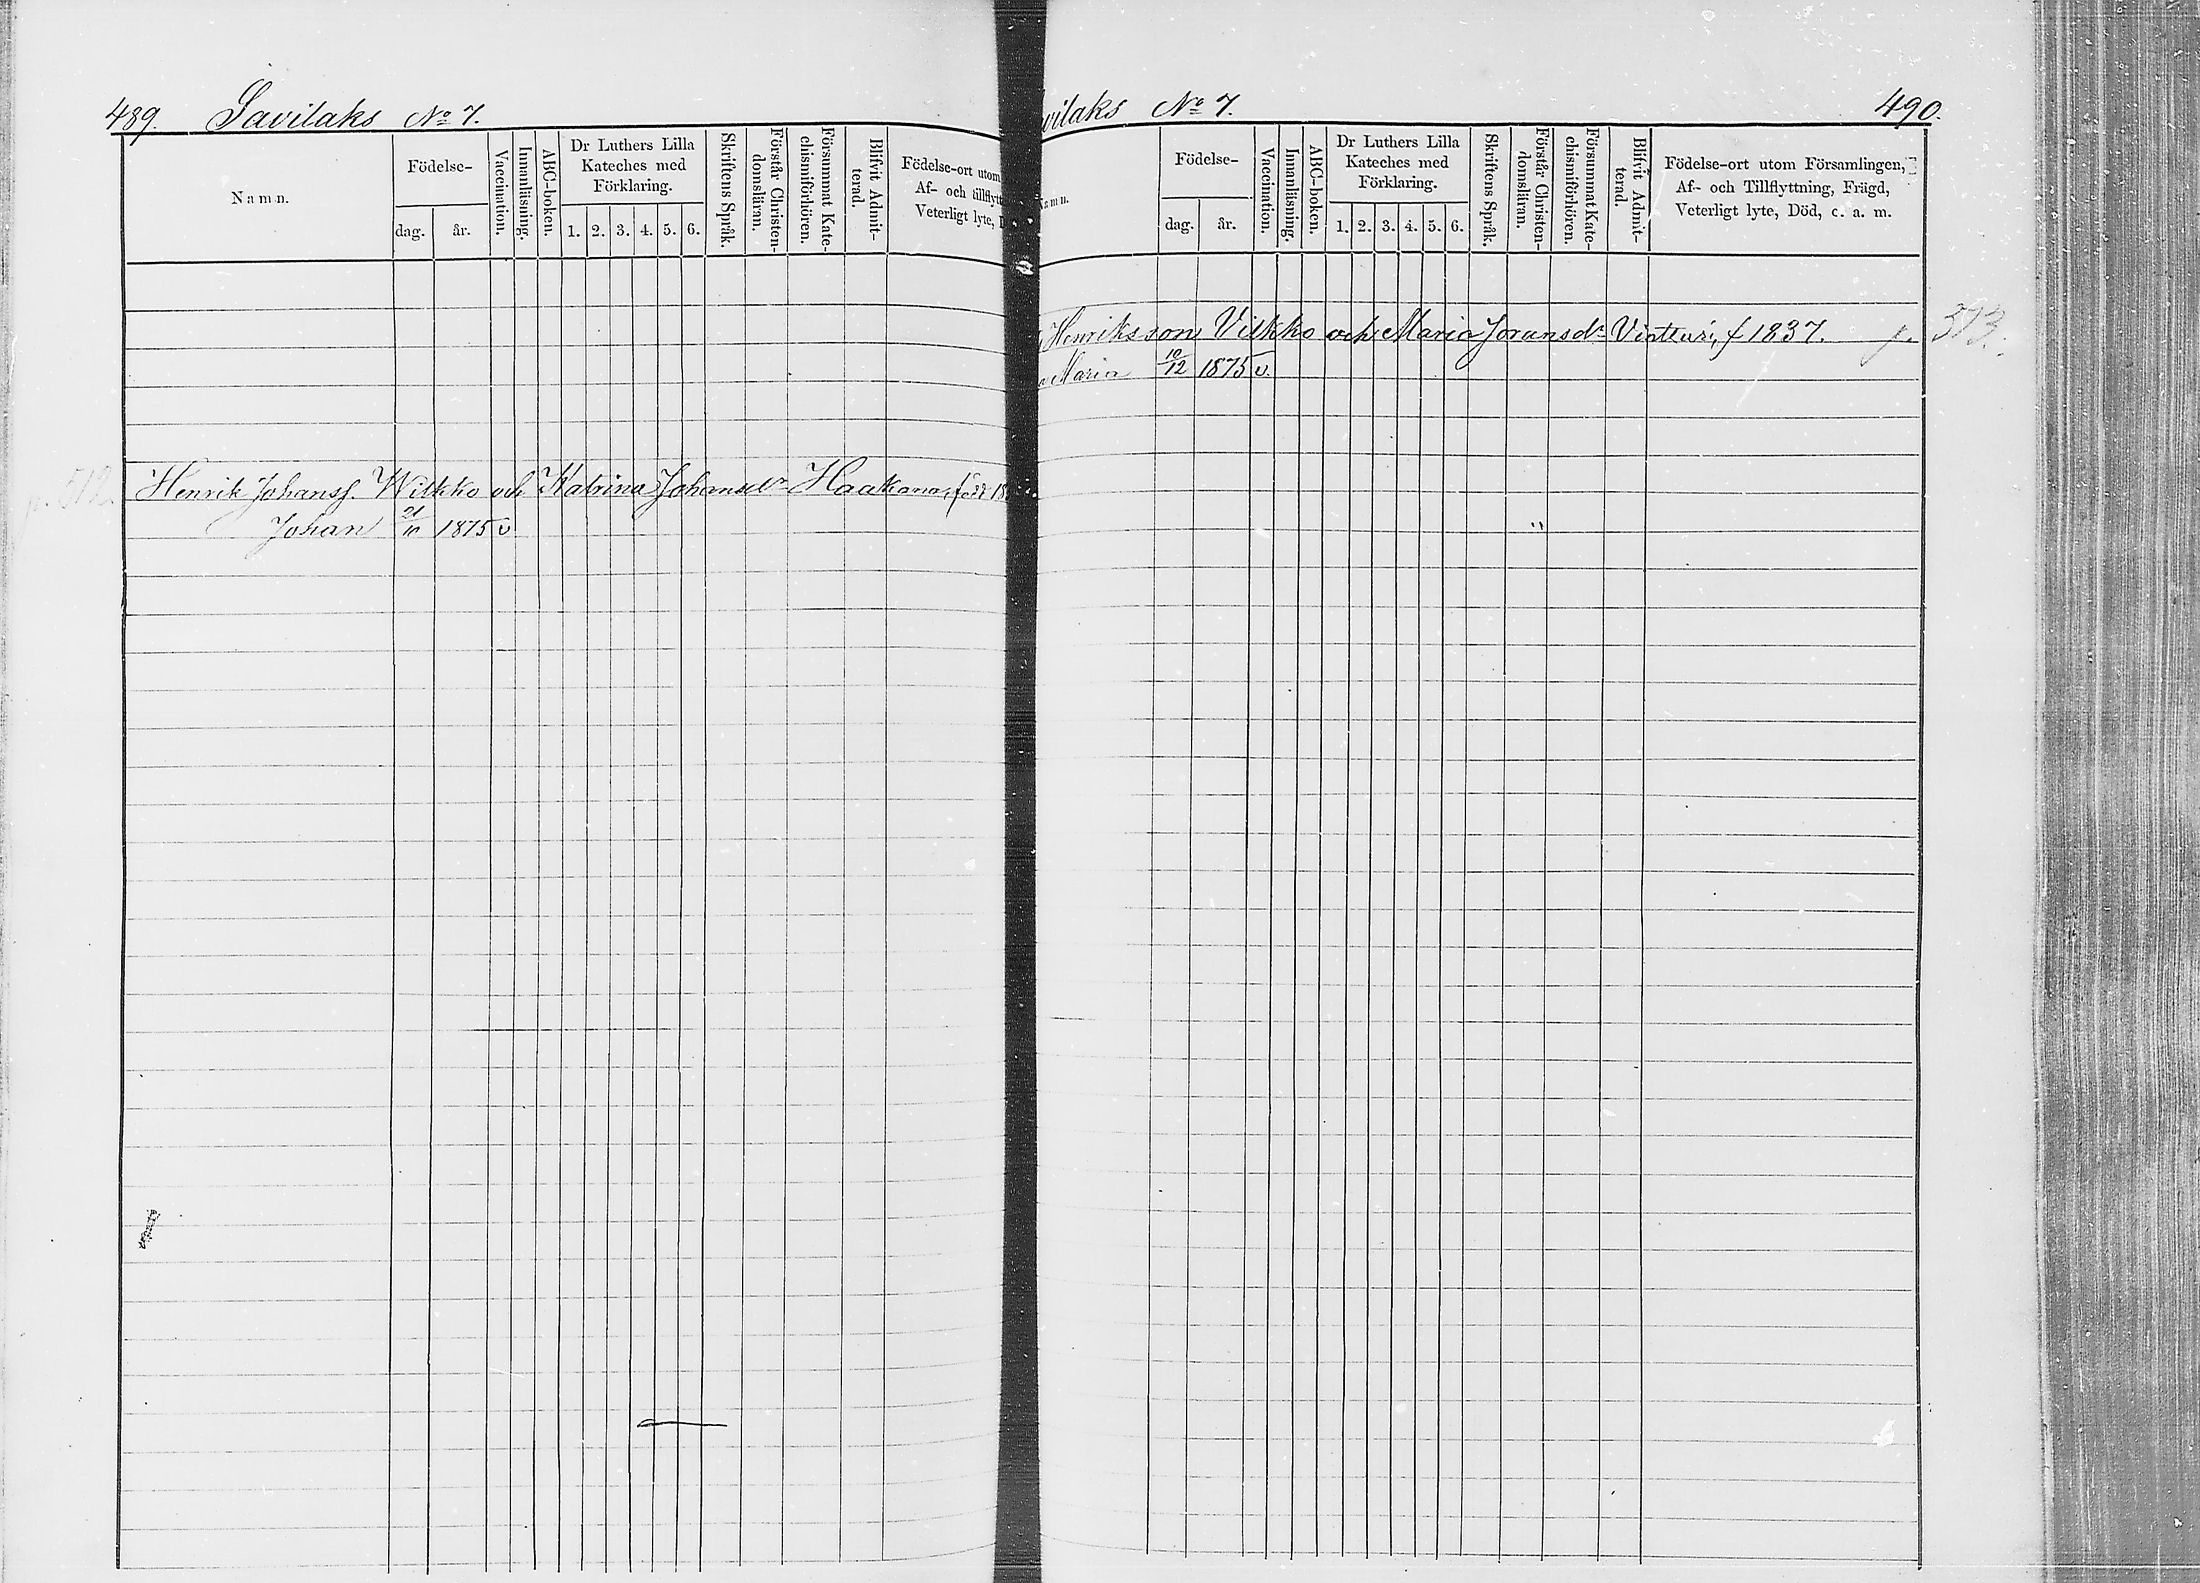 489. Savilaks No 7.
Namn.
Födelse-
dag. år.
Vaccination.
Innanläsning.
ABC-boken.
Dr Luthers Lilla
Kateches med
Förklaring.
1. 2. 3. 4. 5. 6.
Skriftens Språk.
Förstår Christen-
domsläran.
Försummat Kate-
chismiförhören.
Blifvit Admit-
terad.
Födelse-ort utom
Af- och tillflytt
Veterligt lyte,
p. 512.
Henrik Johanss. Wilkko och Katrina Johansdr Haakana, född 18
Johan 21/10 1875 v
vilaks No 7. 490.
Namn.
Födelse-
dag. år.
Vaccination.
Innanläsning.
ABC-boken.
Dr Luthers Lilla
Kateches med
Förklaring.
1. 2. 3. 4. 5. 6.
Skriftens Språk.
Förstår Christen-
domsläran.
Försummat Kate-
chismiförhören.
Blifvit Admit-
terad.
Födelse-ort utom Församlingen,
Af- och Tillflyttning, Frägd,
Veterligt lyte, Död, c. a. m.
Henriksson Vilkko och Maria Göransdr f 1837. p. 513.
Maria 10/12 1875 v.
"